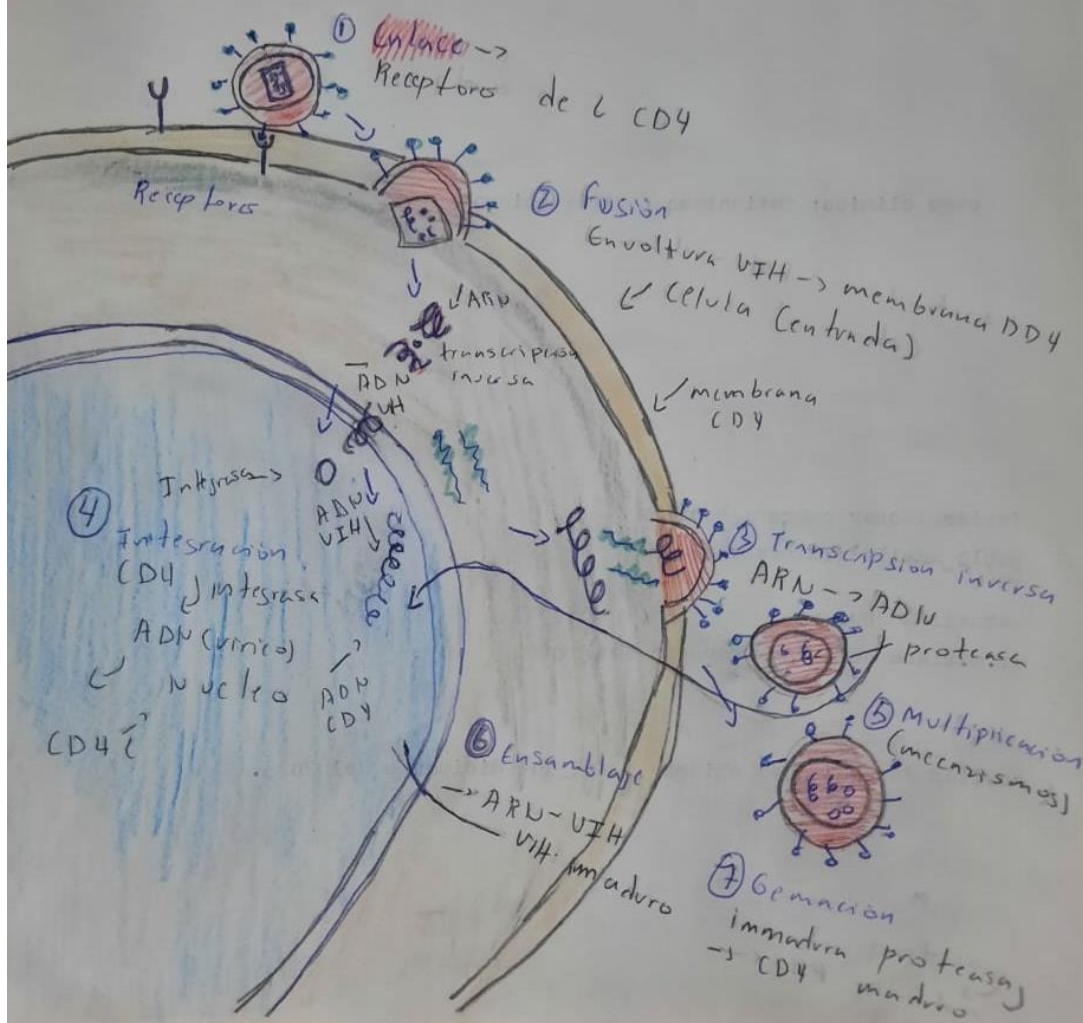 ① Enlace ->
Receptores de L CD4
Receptores
② Fusión
Envoltura VIH -> membrana DD4
Celula (entrada)
ARN
transcripasa
inversa
ADN
VIH
membrana
CD4
Integrasa ->
ADN
VIH
④
Initegración
CD4
integrasa
ADN (vírico)
Nucleo
CD4
ADN
CD4
③ Transcripsión inversa
ARN -> ADN
+ proteasa
⑤ Multiplicación
(mecanismos)
⑥ Ensamblaje
-> ARN - VIH
VIH. inmaduro
⑦ Gemación
immadura proteasa)
-> CD4 maduro